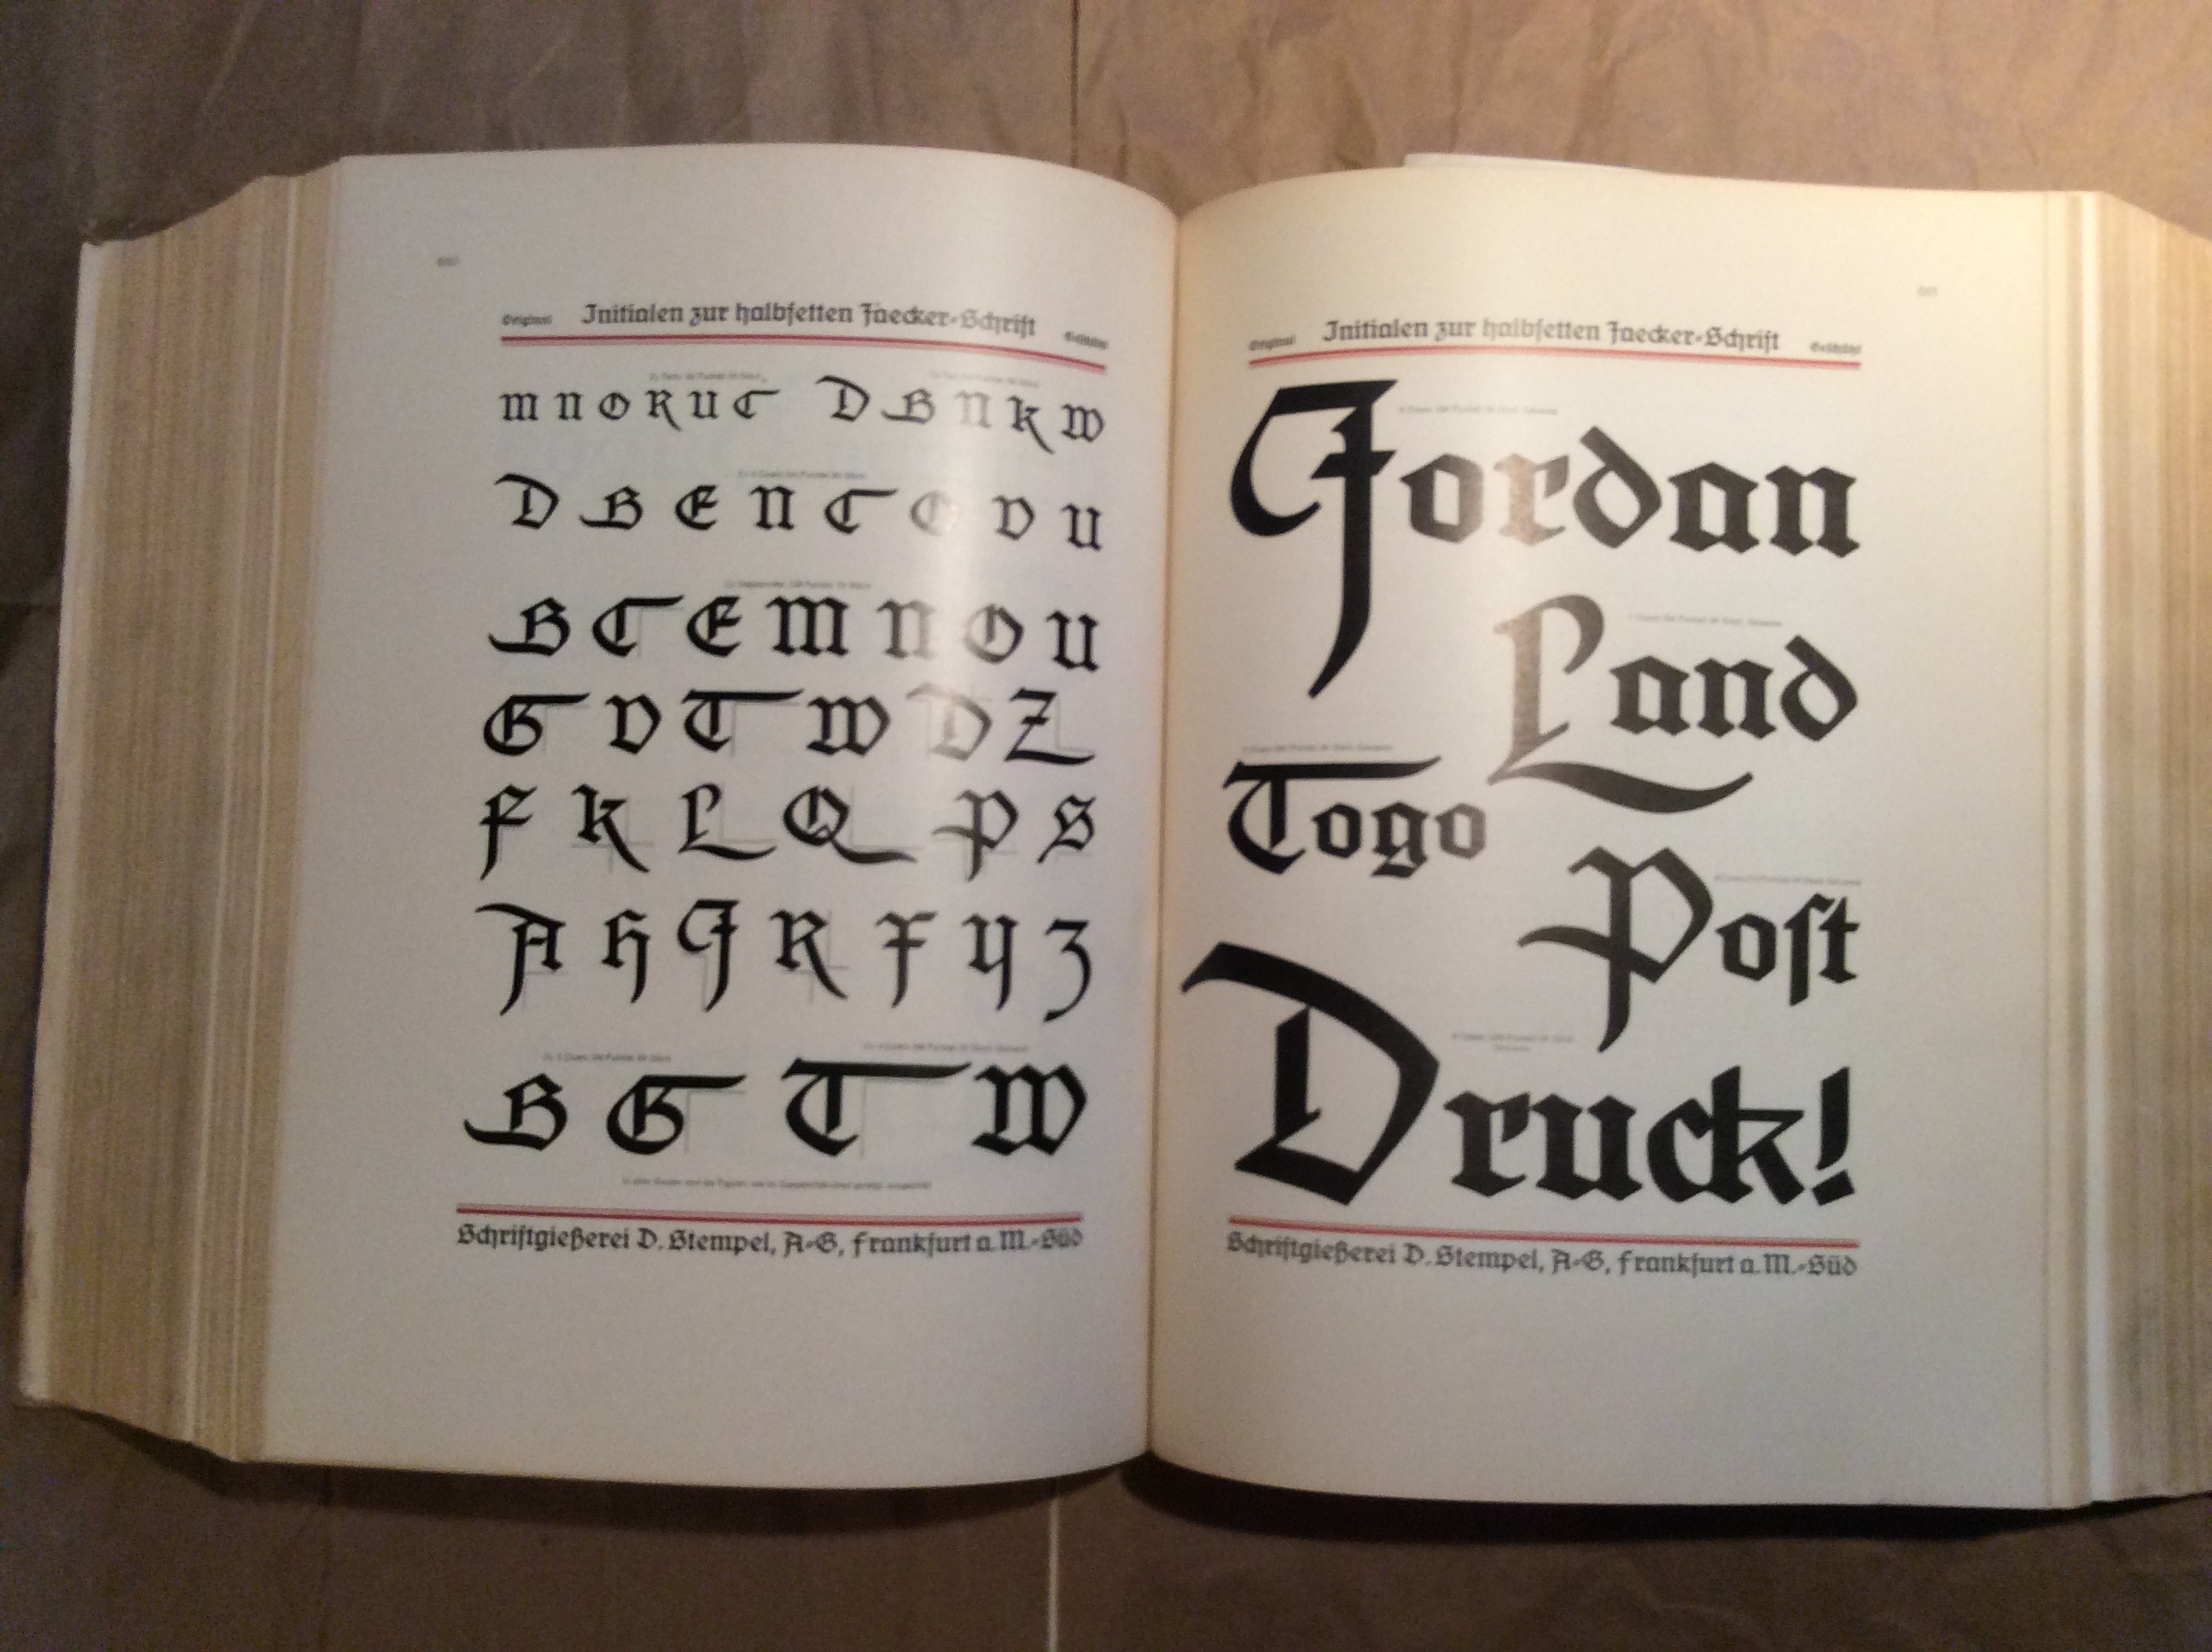 Original Initialen zur halbfetten Jaecker-Schrift Geschützt
M N O R U C D B N K W
D B E N C O V U
B C E M N O U
G V T W D Z
F K L Q P S
A H J R X Y Z
B G T W
Schriftgießerei D. Stempel, A-G, Frankfurt a. M.-Süd
Original Initialen zur halbfetten Jaecker-Schrift Geschützt
Jordan
Land
Togo
Poſt
Druck!
Schriftgießerei D. Stempel, A-G, Frankfurt a. M.-Süd